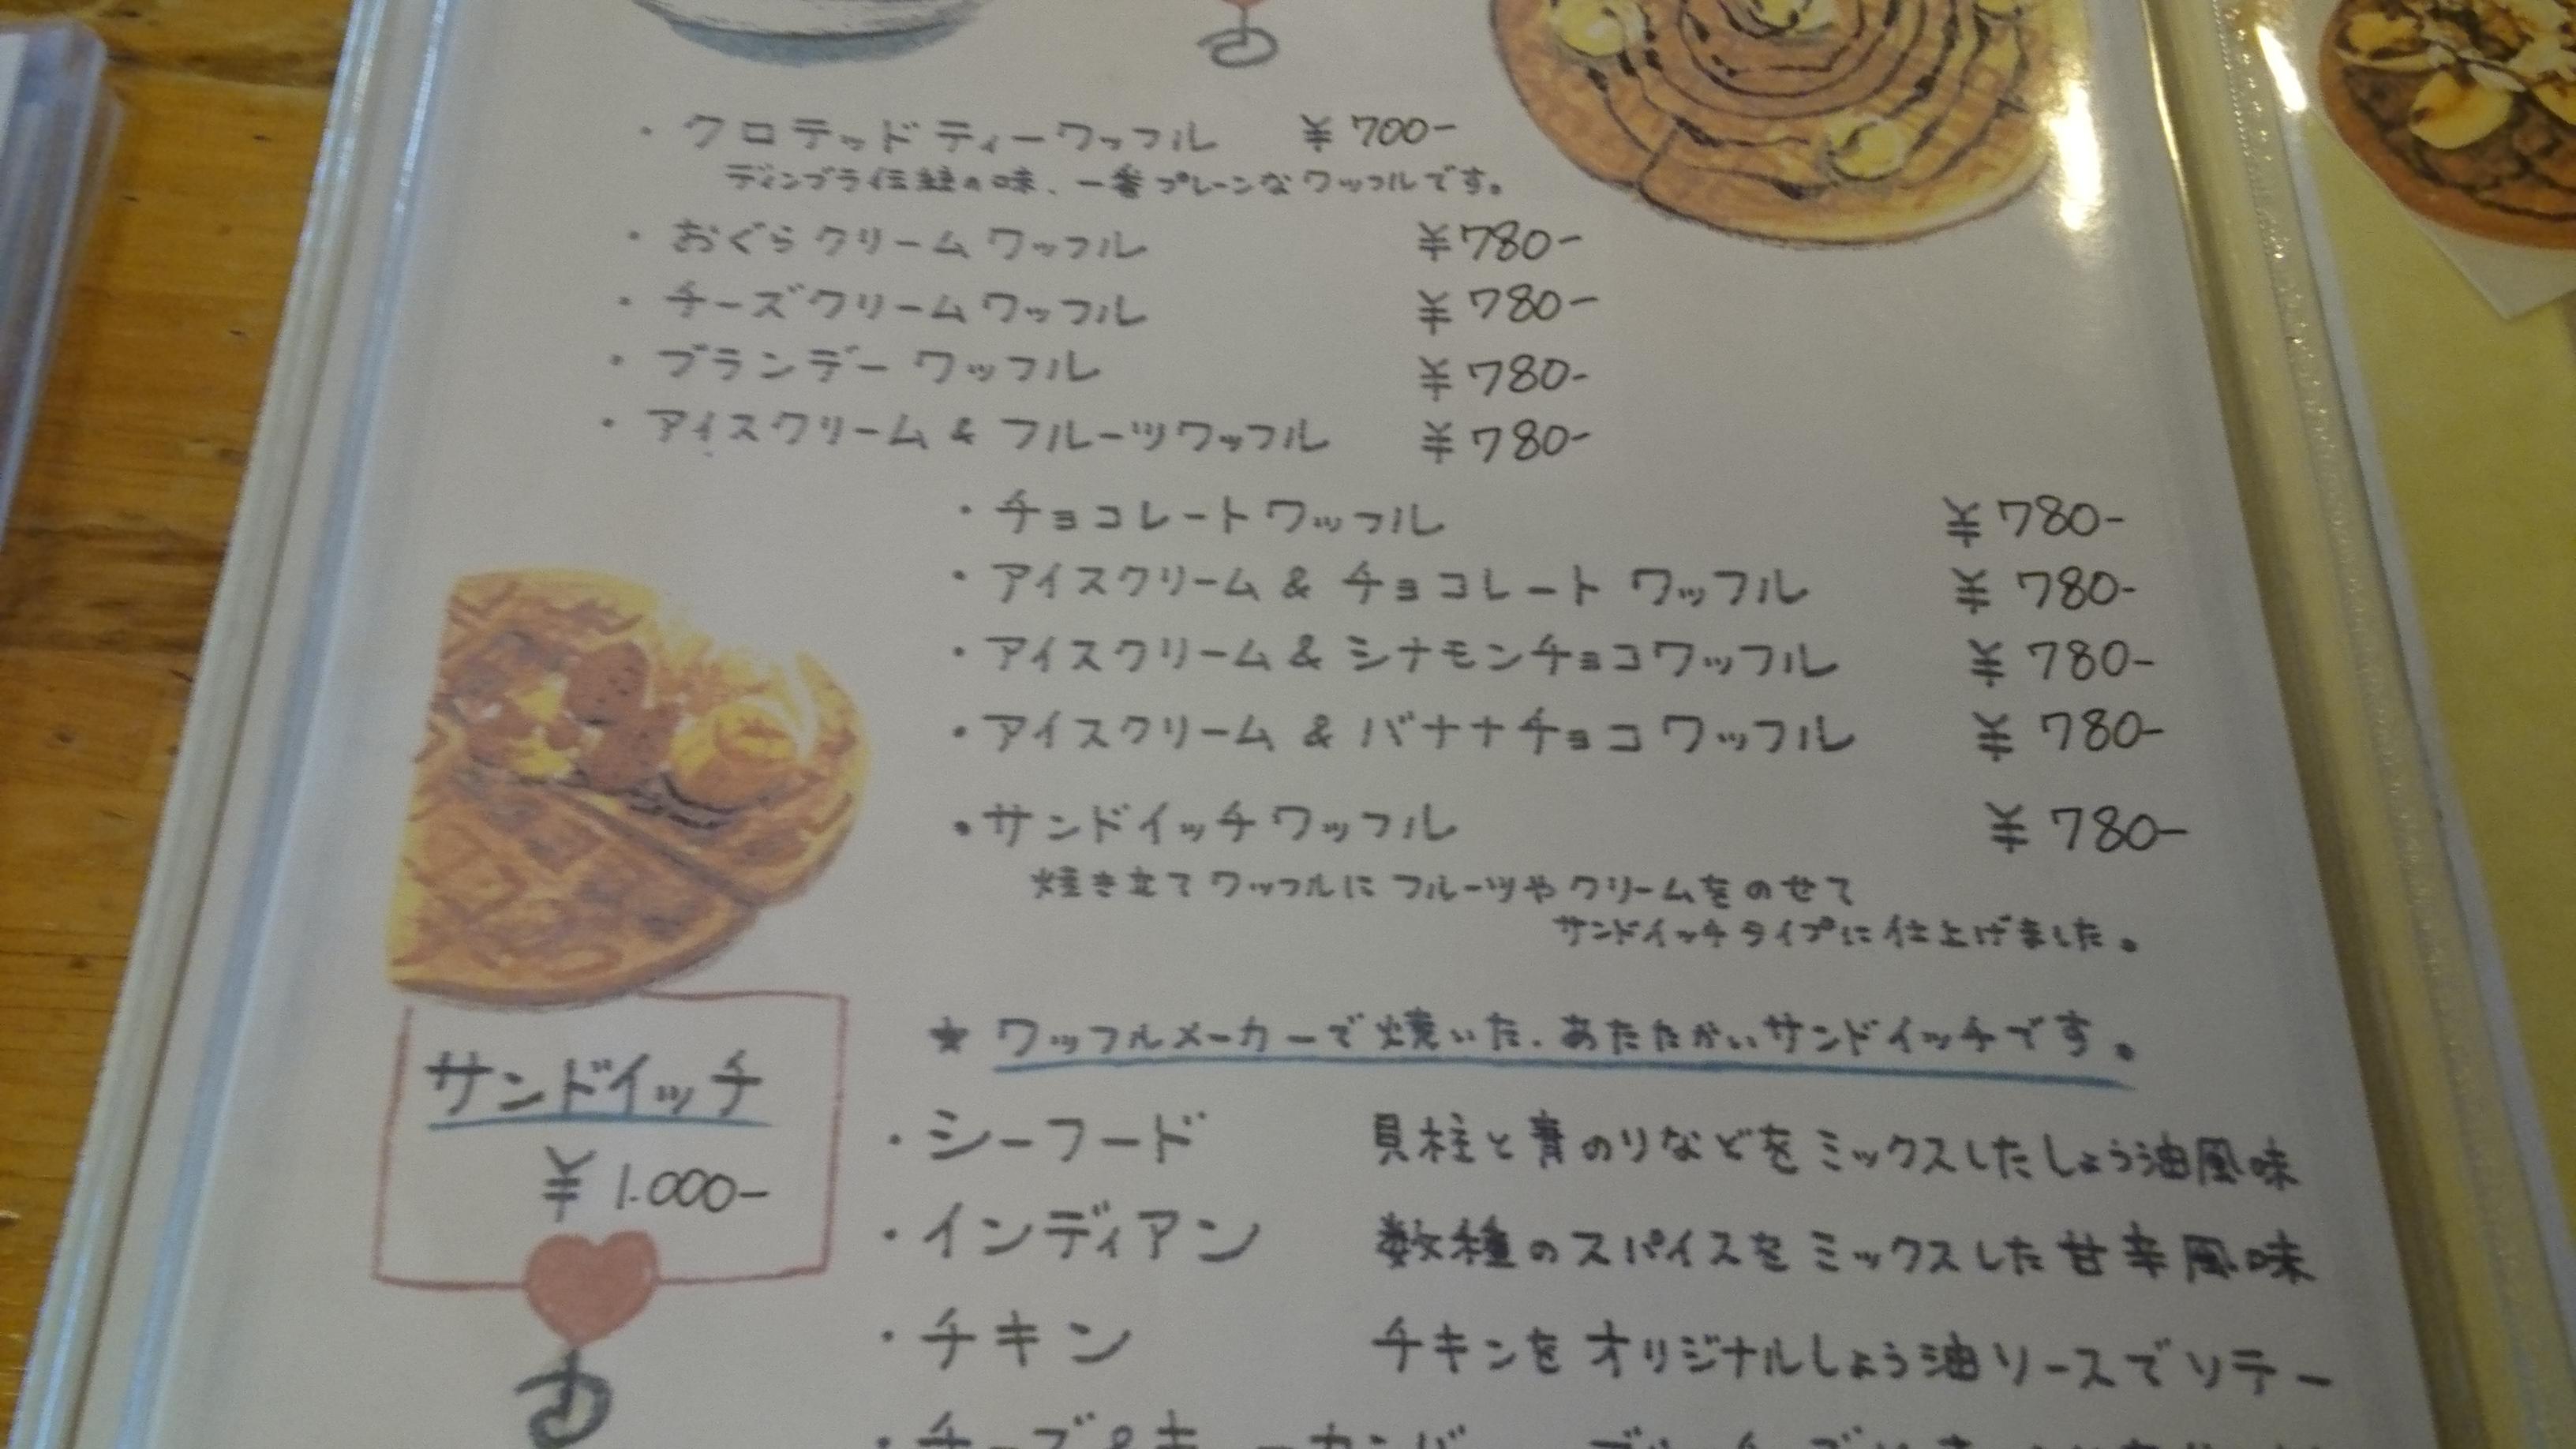 ・クロテッドティーワッフル ¥700-
ディンブラ伝統の味、一番プレーンなワッフルです。
・おぐらクリームワッフル ¥780-
・チーズクリームワッフル ¥780-
・ブランデーワッフル ¥780-
・アイスクリーム & フルーツワッフル ¥780-
・チョコレートワッフル ¥780-
・アイスクリーム & チョコレート ワッフル ¥780-
・アイスクリーム & シナモンチョコワッフル ¥780-
・アイスクリーム & バナナチョコワッフル ¥780-
・サンドイッチワッフル ¥780-
焼き立てワッフルにフルーツやクリームをのせて
サンドイッチタイプに仕上げました。
サンドイッチ
¥1.000-
★ワッフルメーカーで焼いた、あたたかいサンドイッチです。
・シーフード 貝柱と青のりなどをミックスしたしょう油風味
・インディアン 数種のスパイスをミックスした甘辛風味
・チキン チキンをオリジナルしょう油ソースでソテー